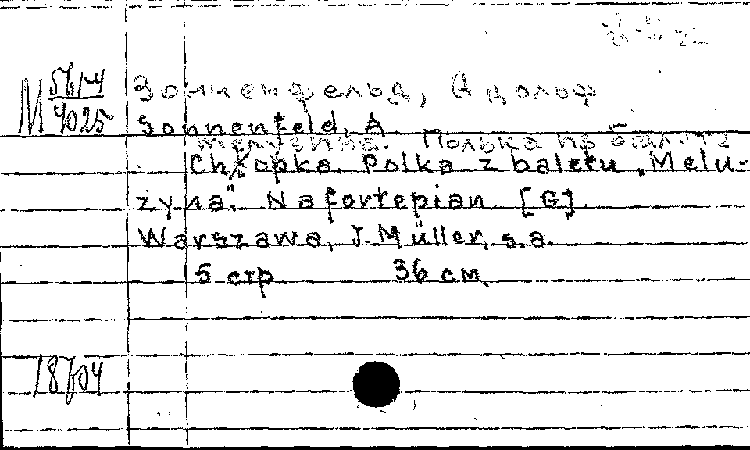 М 56/-4
4025
Зонненфельд, Адольф
Sonnenfeld, A.
Мелузина. Полька из балета
Chłopka. Polka z baletu "Melu-
zyna". Na fortepian [G].
Warszawa, J. Müller, s.a.
5 стр 36 см.
18704